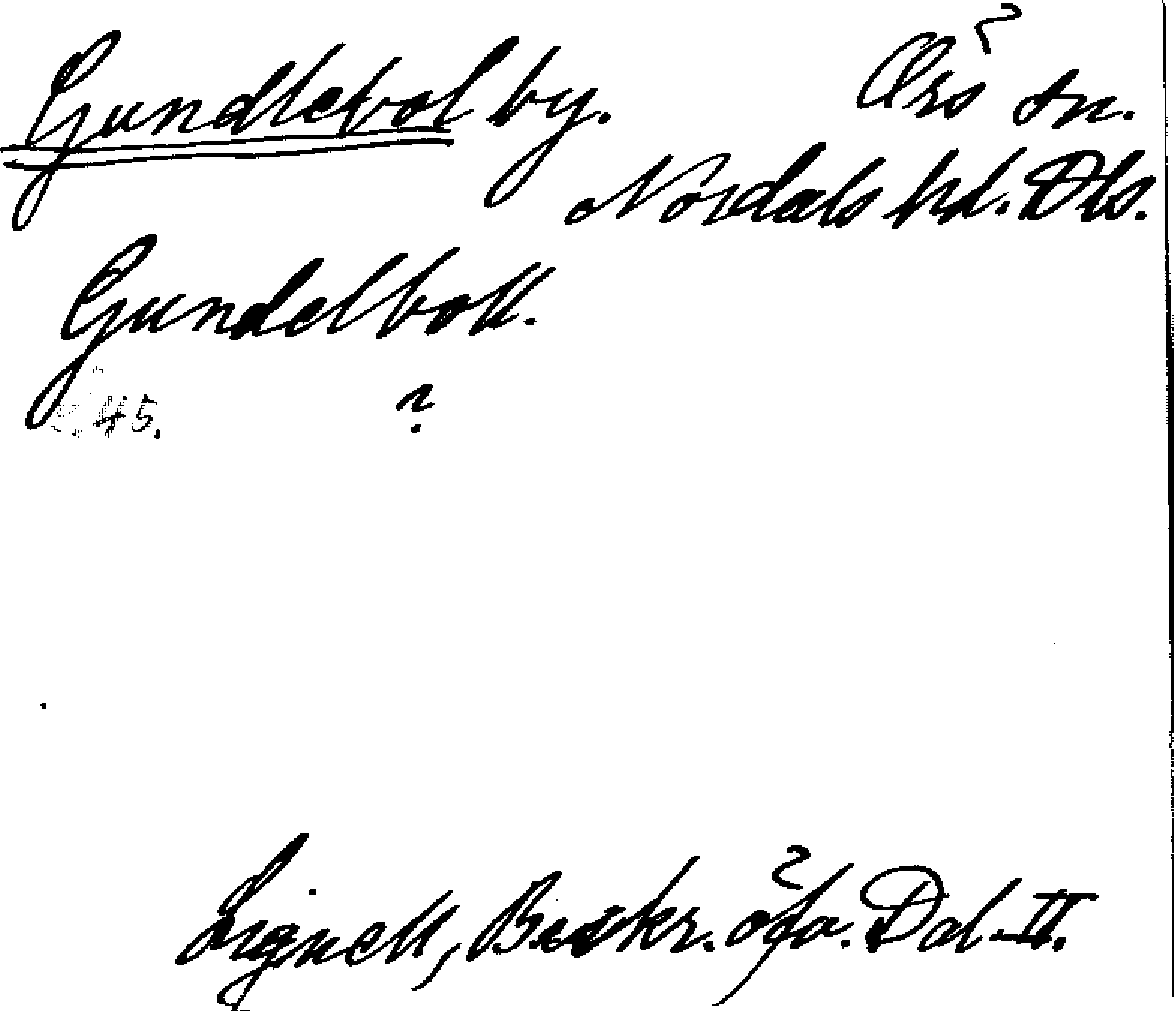 Gundlebol by. Ærs sn.
Nordals hd. Dls.
Gundelboll.
45. ?
Lignell, Beskr. öfv. Dal II.